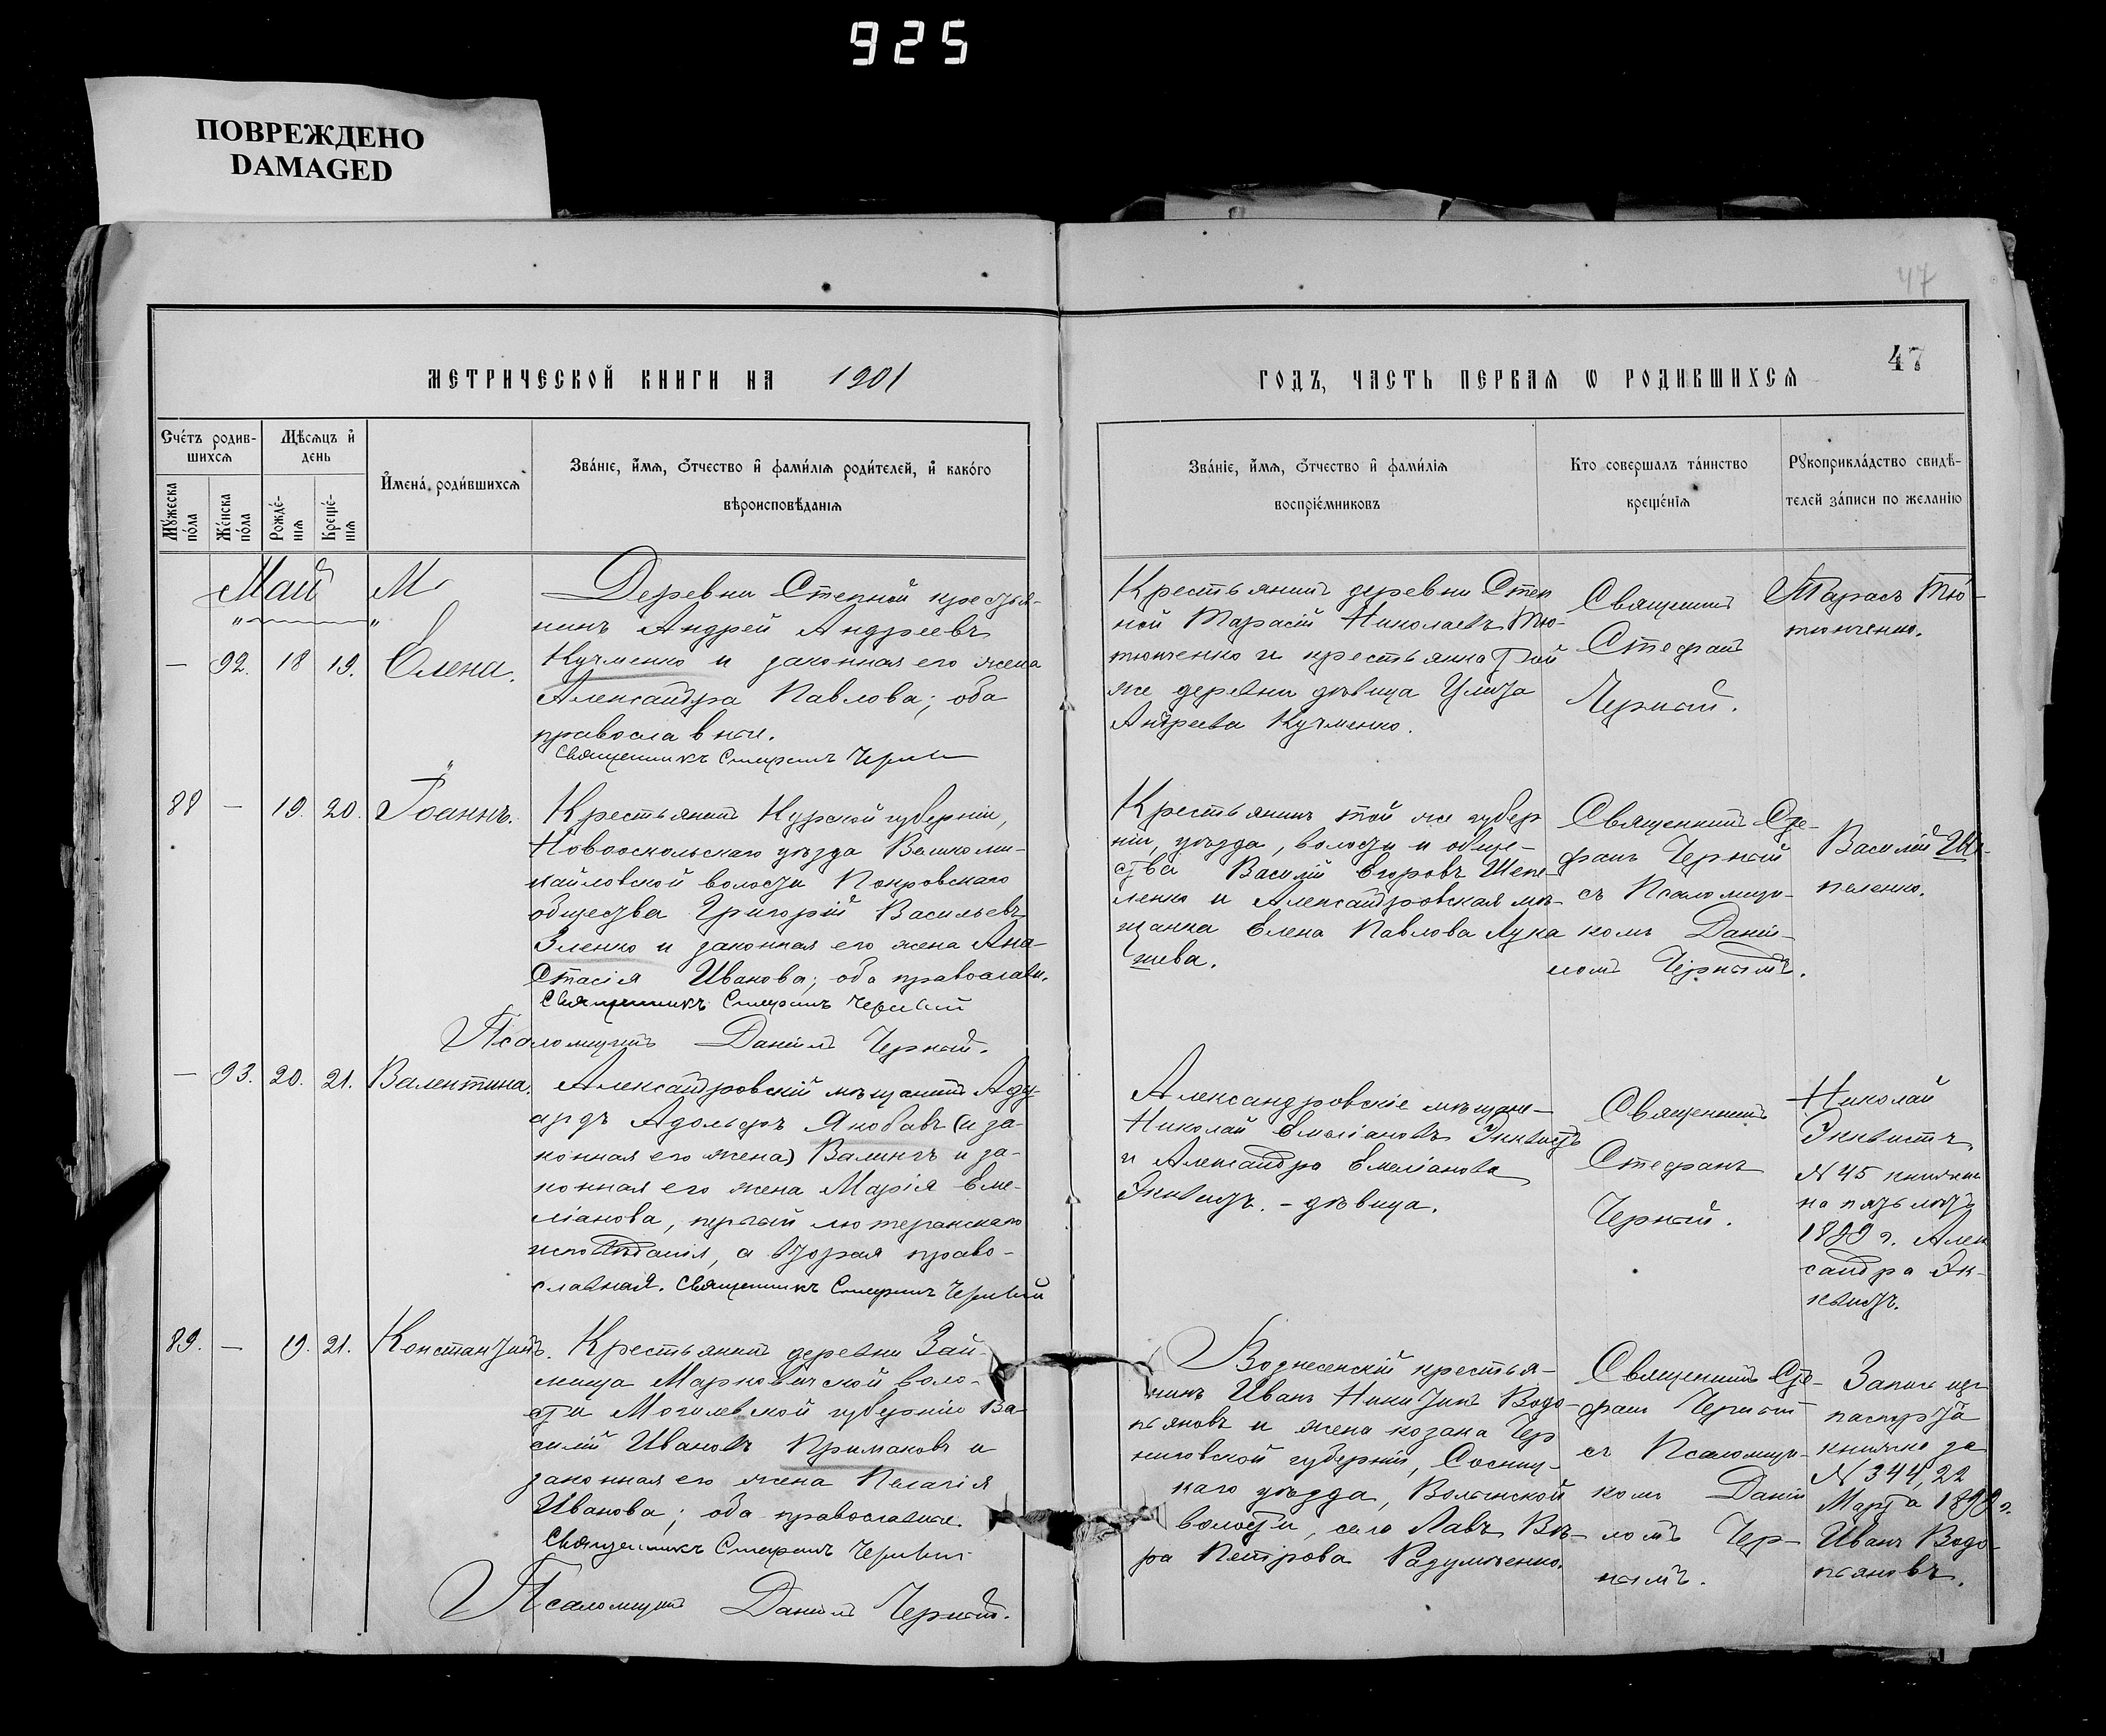 925
ПОВРЕЖДЕНО
DAMAGED
47
47
МЕТРИЧЕСКОЙ КНИГИ НА 1901
ГОДЪ, ЧАСТЬ ПЕРВАѦ Ѡ РОДИВШИХСѦ
Счéтъ родив-
шихсѧ
Мѣсѧцъ и҆
день
Мꙋжеска
пóла
Жéнска
пóла
Рождé-
нїѧ
Крещé-
нїѧ
И҆менá роди́вшихсѧ
Звáнїе, и҆́мѧ, ѻ҆́тчество и҆ фами́лїѧ роди́телей, и҆ какóго
вѣроисповѣ́данїѧ
Звáнїе, и҆́мѧ, ѻ҆́тчество и҆ фами́лїѧ
воспрїéмниковъ
Кто совершалъ тáинство
крещéнїѧ
Рꙋкоприклáдство свидѣ́-
телей зáписи по желанїю
Май М
— 92. 18 19. Елена.
Деревни Степной кресть­я-
нинъ Андрей Андреевъ
Кучменко и законная его жена
Александра Павлова; оба
православные.
Священникъ Стефанъ Черный
Крестьянинъ деревни Степ
ной Тарасій Николаевъ Тю-
тюнченко и крестьянка той
же деревни дѣвица Улита
Андреева Кучменко.
Священникъ
Стефанъ
Черный.
Тарасъ Тю-
тюнченко.
88 — 19. 20. Іоаннъ.
Крестьянинъ Курской губерніи,
Новооскольскаго уѣзда Велико-ми-
хайловской волости Покровскаго
общества Григорій Васильевъ
Зленко и законная его жена Ана-
стасія Иванова; оба православн.
Священникъ Стефанъ Черный
Псаломщикъ Даніилъ Черный.
Крестьянинъ той же губер
ніи, уѣзда, волости и обще-
ства Василій Егоровъ Шепе-
ленко и Александровская мѣ-
щанка Елена Павлова Лука
шева.
Священникъ Сте-
фанъ Черный
съ Псаломщи-
комъ Даніи-
ломъ Чернымъ.
Василій Ше-
пеленко.
— 93. 20. 21. Валентина.
Александровскій мѣщанинъ Аду-
ардъ Адольфъ Якобовъ (и за-
конная его жена) Валингъ и за-
конная его жена Марія Еме-
ліанова, первый лютеранскаго
исповѣданія, а вторая право-
славная. Священникъ Стефанъ Черный
Александровскіе мѣщане-
Николай Емеліановъ Энквистъ
и Александра Емеліанова
Энквистъ. – дѣвица.
Священникъ
Стефанъ
Черный.
Николай
Энквистъ
N 45 книжки
на пять лѣтъ
1899 г. Алек
сандра Эн-
квистъ.
89. — 19. 21. Константинъ.
Крестьянинъ деревни Зай-
мища Марковичской воло-
сти Могилевской губерніи Ва-
силій Ивановъ Примаковъ и
законная его жена Пелагія
Иванова; оба православные.
Священникъ Стефанъ Черный
Псаломщикъ Даніилъ Черный.
Вознесенскій крестья-
нинъ Иванъ Никитинъ Водо-
пьяновъ и жена козака Чер
ниговской губерніи, Сосниц-
каго уѣзда, Волынской
волости, села Лавъ Вѣ-
ра Петрова Радумченко.
Священникъ Сте-
фанъ Черный
съ Псаломщи-
комъ Даніи
ломъ Чер-
нымъ.
Запись изъ
паспорта
книжка за
N 344, 22
Марта 1899 г.
Иванъ Водо-
пьяновъ.